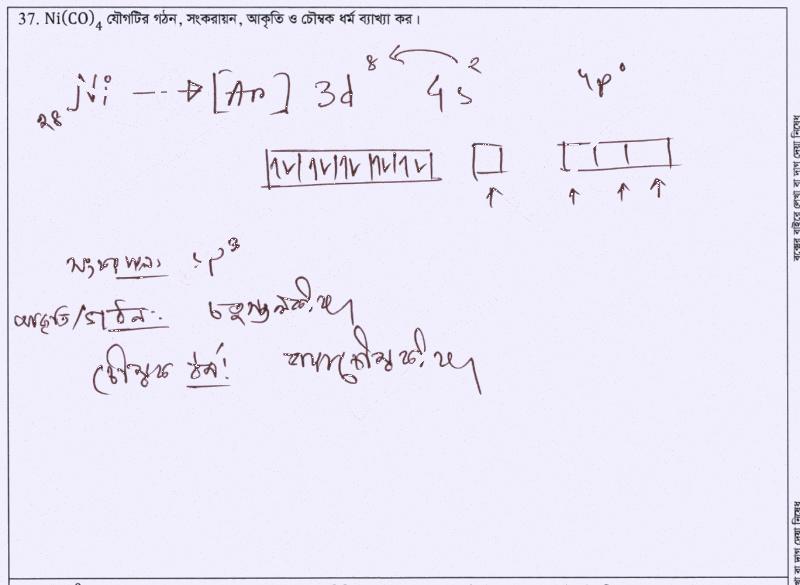 37. Ni(CO)₄ যৌগটির গঠন, সংকরায়ন, আকৃতি ও চৌম্বক ধর্ম ব্যাখ্যা কর।
₂₈Ni → [Ar] 3d⁸ 4s² 4p⁰
সংকরায়ন: sp³
আকৃতি/গঠন: চতুস্তলকীয়
চৌম্বক ধর্ম:
বক্সের বাইরে লেখা বা দাগ দেয়া নিষেধ
বা দাগ দেয়া নিষেধ